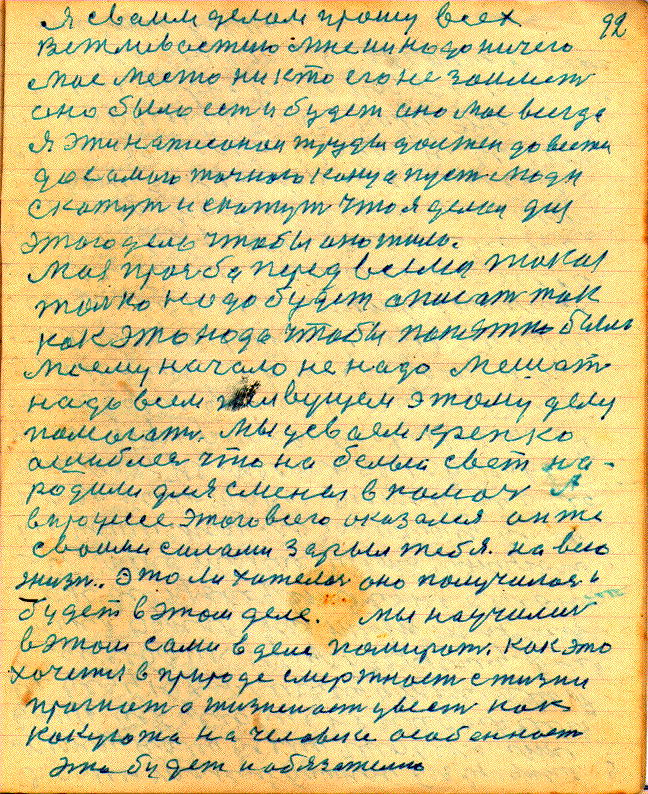 Я своим делом прошу всех 92
вежливостию мне ни надо ничего
мое место никто его не займет
оно было есть и будет оно мое всегда
Я эти написоной труды должен довести
до самого точного конца пуст люди
скажут и скажут что я делал для
этого дело чтобы оно жило.
Моя прозба перед всеми такая
толко надо будет описат так
как это нада чтобы понятно было
моему начало не надо мешат
надо всем живущем этому делу
помогат. Мы усваем крепко
ошиблися что на белый свет на-
родили для смены в помоч Я
в процссе этого всего оказался он же
своими силами зарыл тебя. на всю
жизн. Это ли хотелося оно получилося и
будет в этом деле. Мы научилис
в этом сами в деле помират. как это
хочется в природе смертност с жизни
прогнат а жизненост увест как
какую то на человеке особенност
Это будет и обязателно